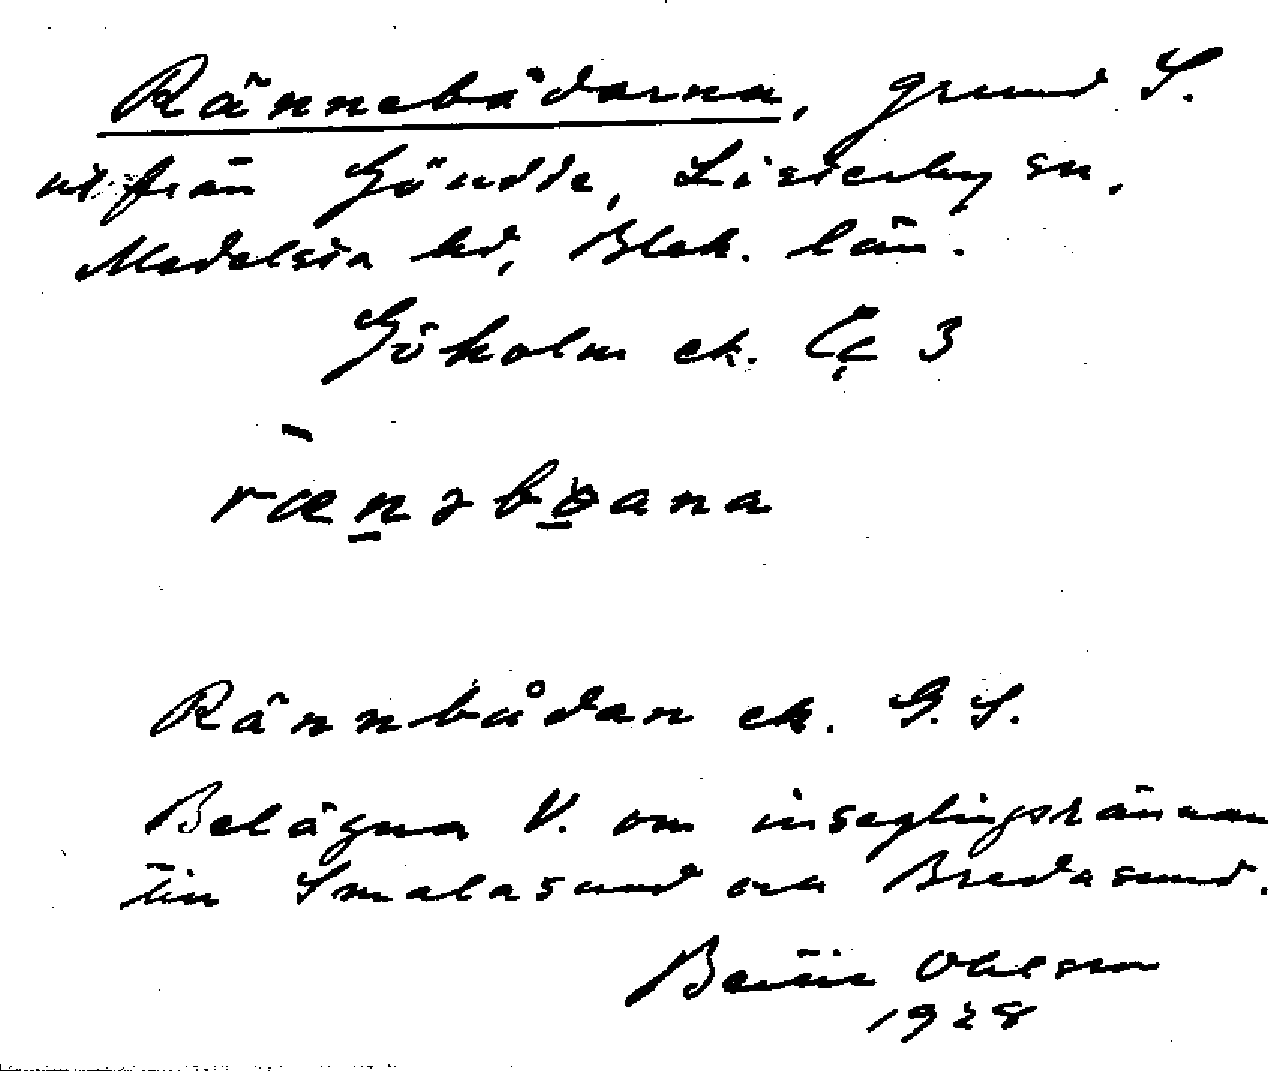 Rännebådarna, grund S.
ut från Göudde, Listerby sn,
Medelsta hd, Blek. län.
Göholm ek. Çç 3
rænəboana
Rännbådan ek. G.S.
Belägna V. om inseglingsrännan
till Smalasund och Bredasund.
Bertil Ohlsson
1928